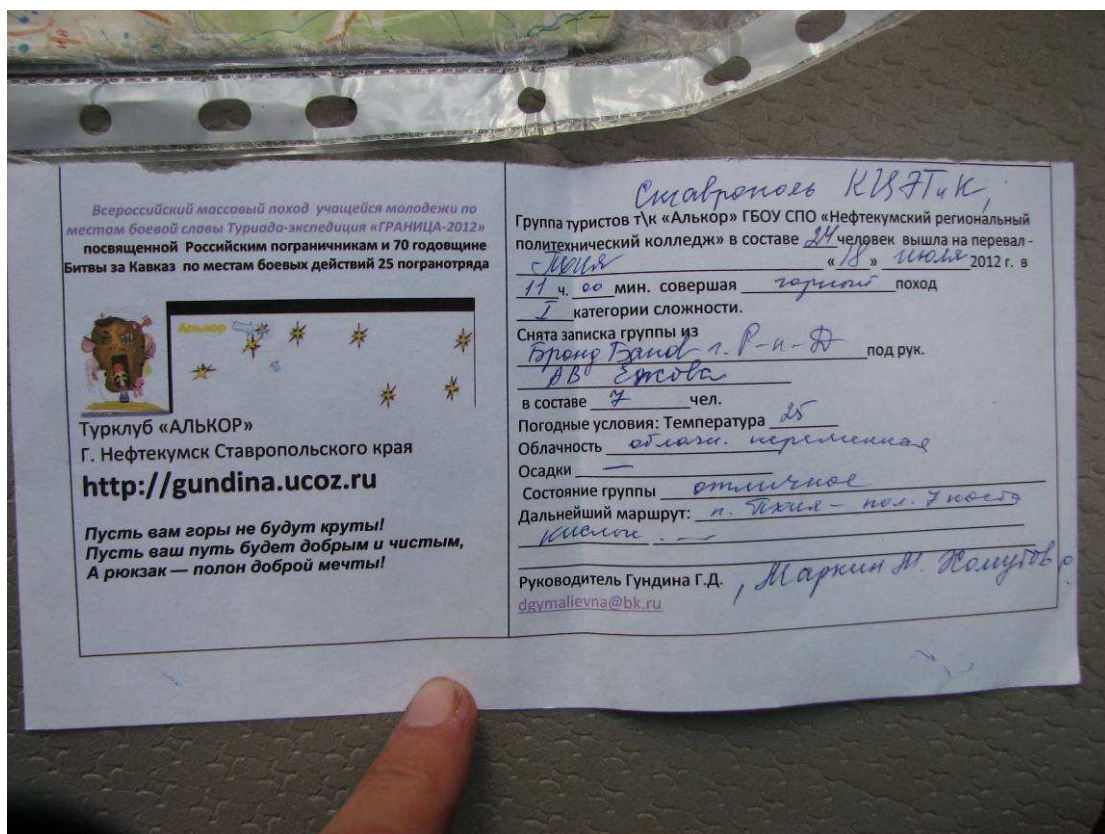 Всероссийский массовый поход учащейся молодежи по
местам боевой славы Туриада-экспедиция «ГРАНИЦА-2012»
посвященной Российским пограничникам и 70 годовщине
Битвы за Кавказ по местам боевых действий 25 погранотряда
Алькор
Турклуб «АЛЬКОР»
Г. Нефтекумск Ставропольского края
http://gundina.ucoz.ru
Пусть вам горы не будут круты!
Пусть ваш путь будет добрым и чистым,
А рюкзак — полон доброй мечты!
Ставрополь КЦЭТиК,
Группа туристов т\к «Алькор» ГБОУ СПО «Нефтекумский региональный
политехнический колледж» в составе 24 человек вышла на перевал -
«18» июля 2012 г. в
11 ч. 00 мин. совершая горный поход
I категории сложности.
Снята записка группы из
г. Р-н-Д под рук.
АВ Ежова
в составе 7 чел.
Погодные условия: Температура 25
Облачность облачн. переменная
Осадки —
Состояние группы отличное
Дальнейший маршрут: п. Пхия – пол. 7 поста
Руководитель Гундина Г.Д. , Маркин М. Хомутов
dgymalievna@bk.ru